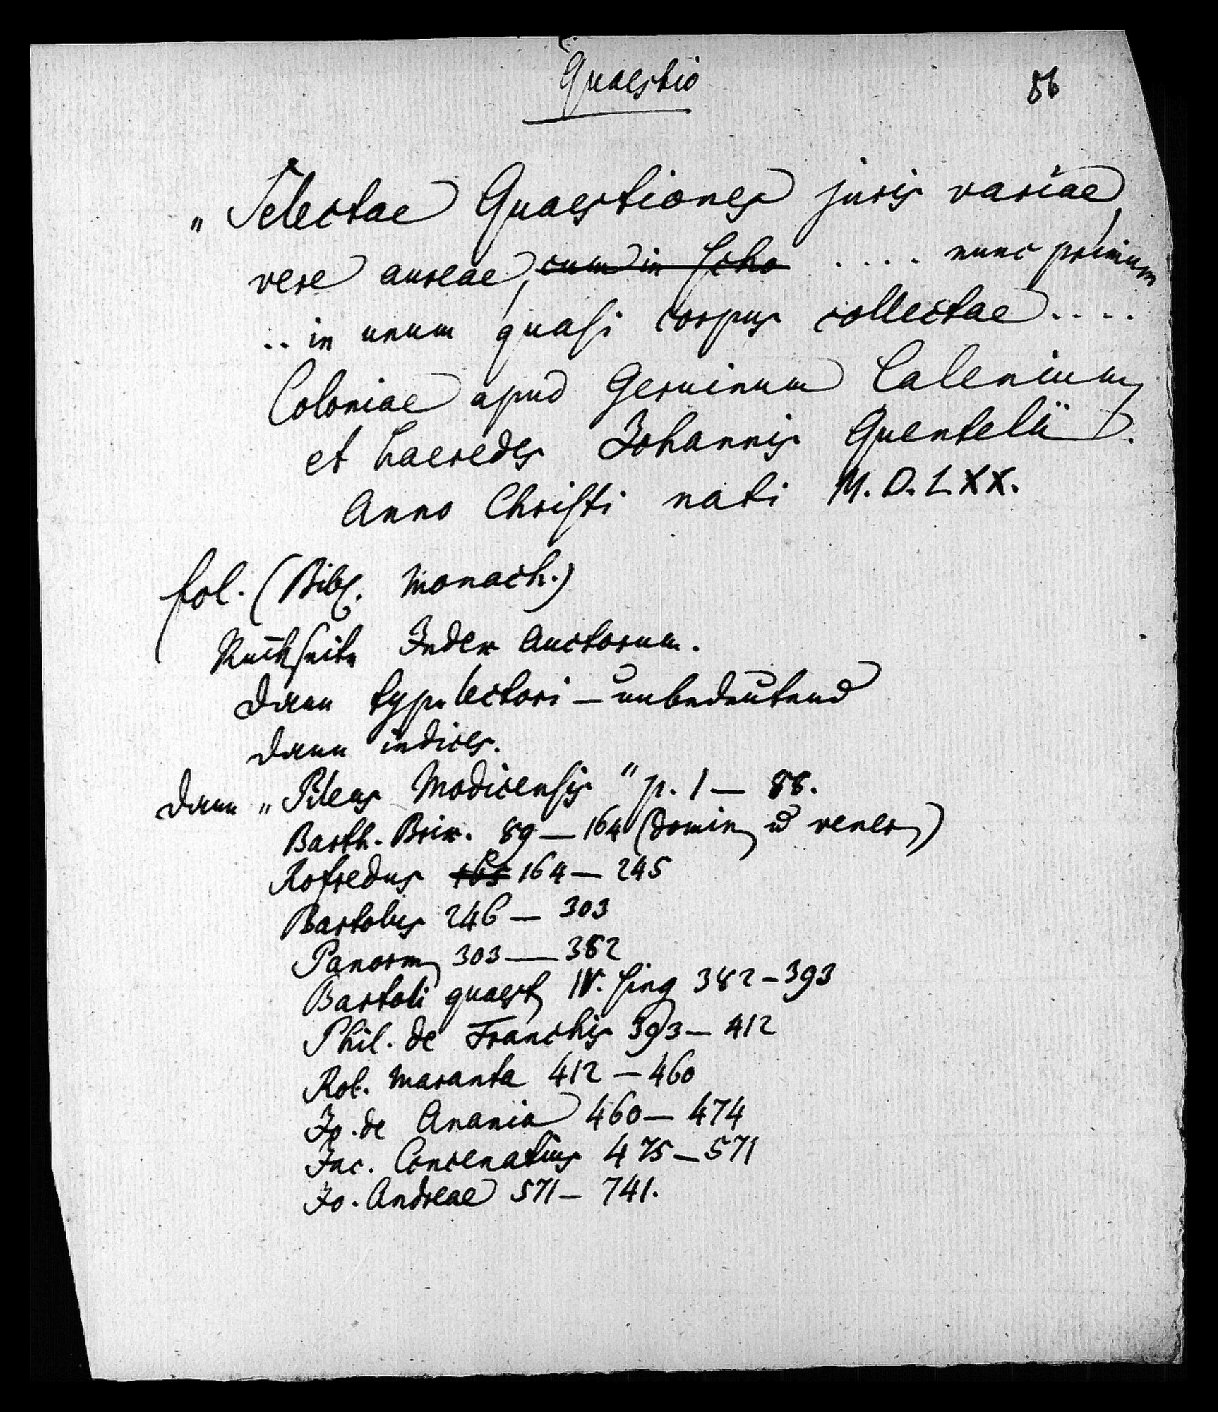 Quaestio
86
„Selectae Quaestiones juris variae,
vere aureae, cum in Scho .... nunc primum
.. in unum quasi corpus collectae ....
Coloniae apud Geruinum Calenium
et haeredes Johannis Quentelii.
Anno Christi nati M.D.LXX.
fol. (Bibl. Monach.)
Rückseite Index Auctorum.
dann typ. lectori – unbedeutend
dann indices.
dann „Pileus Modicensis" p. 1 – 88.
Barth. Brix. 89 – 164 (domin u vener)
Rofredus 165 164 – 245
Bartolus 246 – 303
Panorm 303 – 382
Bartoli quaest IV. sing 382 – 393
Phil. de Franchis 393 – 412
Rob. Maranta 412 – 460
Jo. de Anania 460 – 474
Jac. Concenatius 475 – 571
Jo. Andreae 571 – 741.